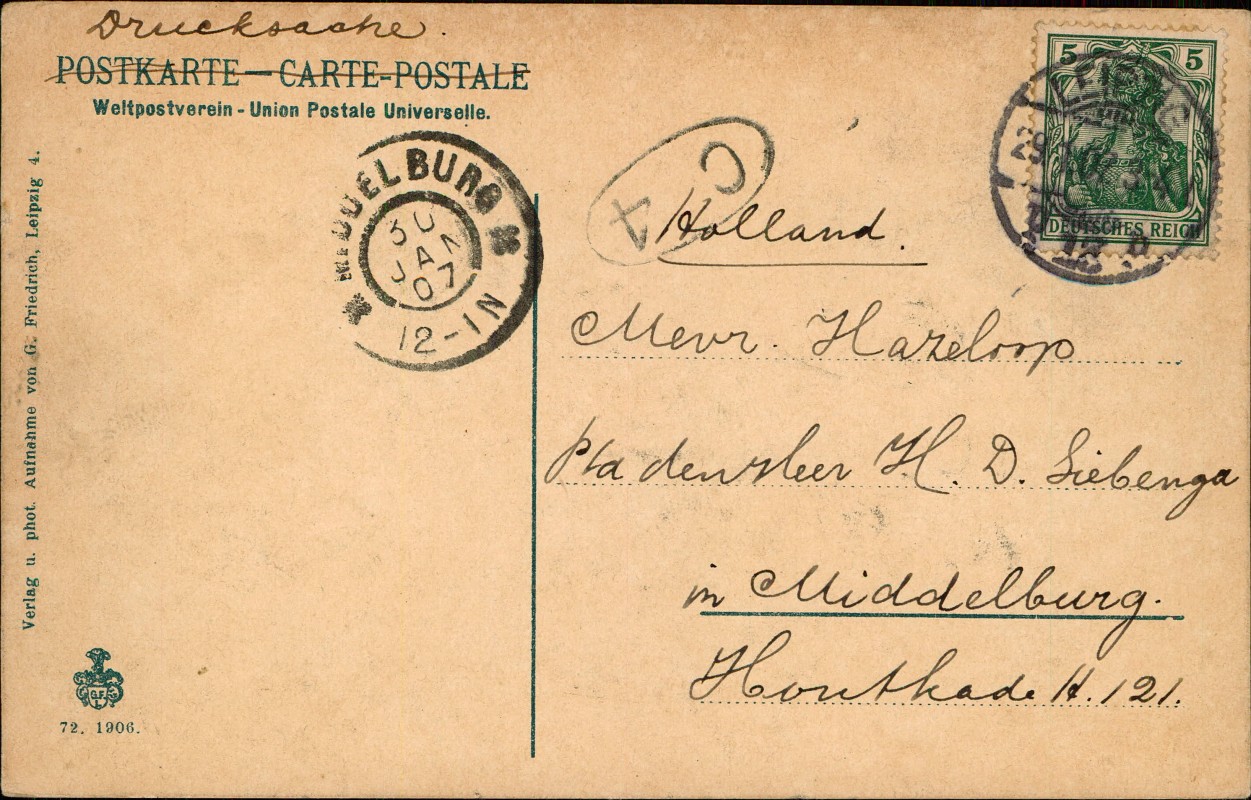 Drucksache.
POSTKARTE — CARTE-POSTALE
Weltpostverein - Union Postale Universelle.
5 5
DEUTSCHES REICH
LEIPZIG
MIDDELBURG
30 JA 07
12-1N
C 4
Holland.
Mevr. Hazeloop
den Heer H. D. Siebenga
in Middelburg.
Houtkade H. 121.
Verlag u. phot. Aufnahme von G. Friedrich, Leipzig 4.
G.F.
L.
72. 1906.